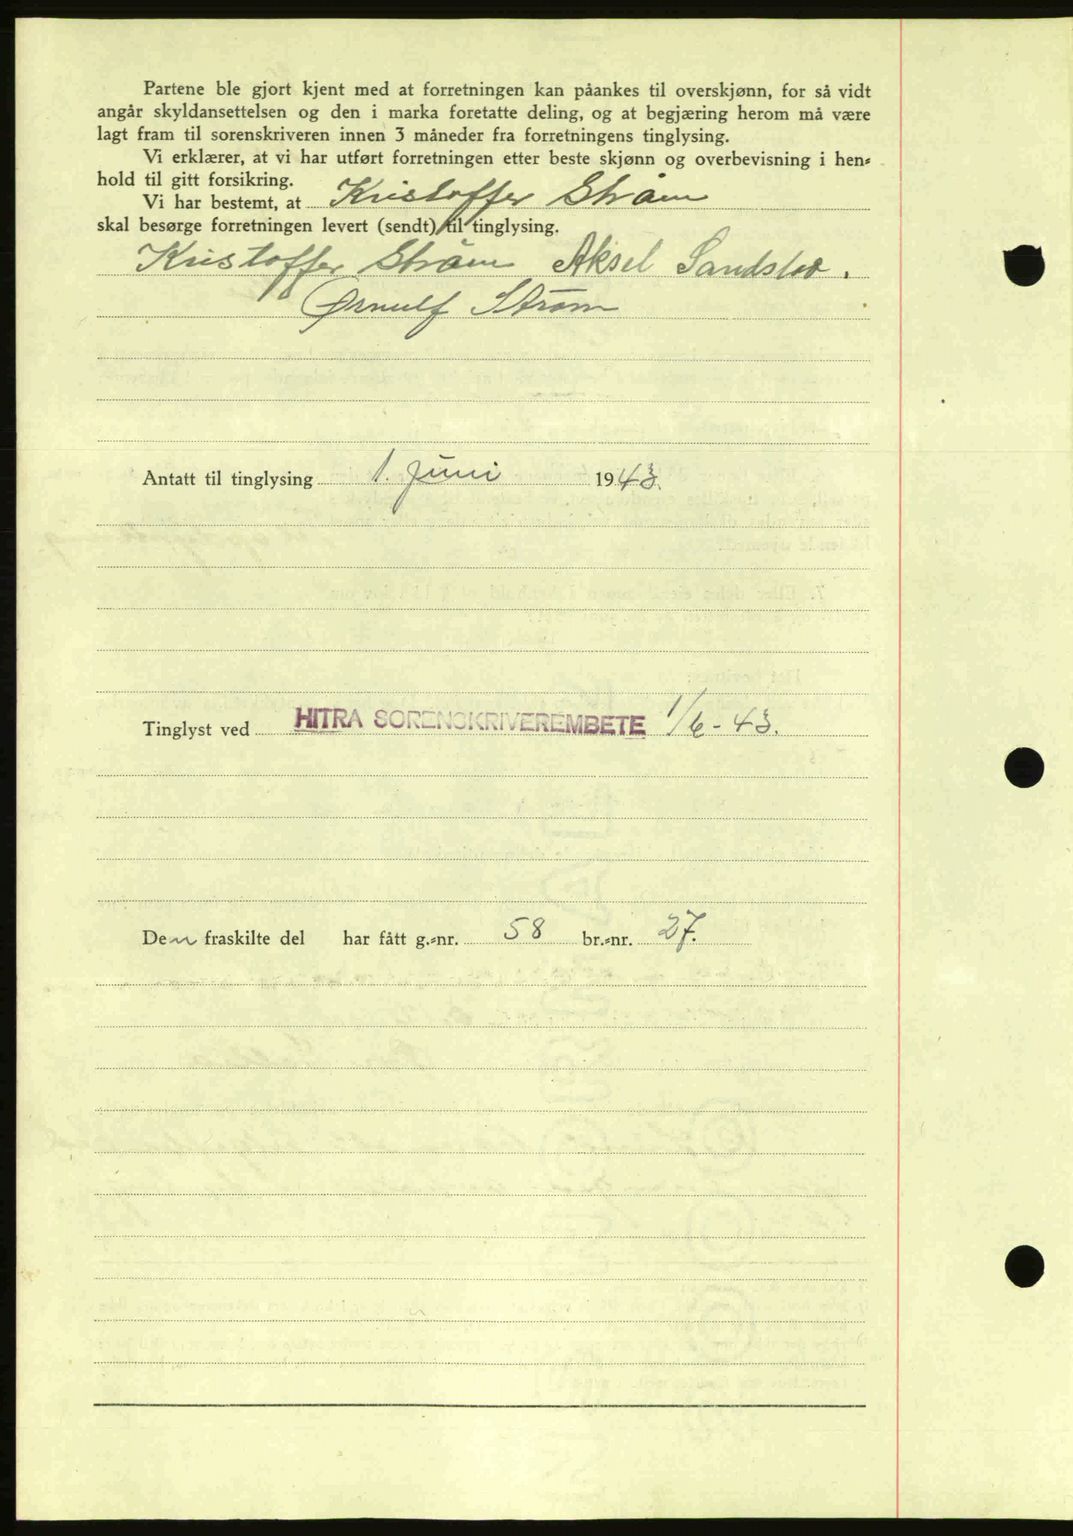 Partene ble gjort kjent med at forretningen kan påankes til overskjønn, for så vidt
angår skyldansettelsen og den i marka foretatte deling, og at begjæring herom må være
lagt fram til sorenskriveren innen 3 måneder fra forretningens tinglysing.
Vi erklærer, at vi har utført forretningen etter beste skjønn og overbevisning i hen=
hold til gitt forsikring.
Vi har bestemt, at Kristoffer Strøm
skal besørge forretningen levert (sendt) til tinglysing.
Kristoffer Strøm Aksel
Ørnulf Strøm
Antatt til tinglysing 1. juni 1943.
Tinglyst ved HITRA SORENSKRIVEREMBETE 1/6-43.
Den fraskilte del har fått g.=nr. 58 br.=nr. 27.